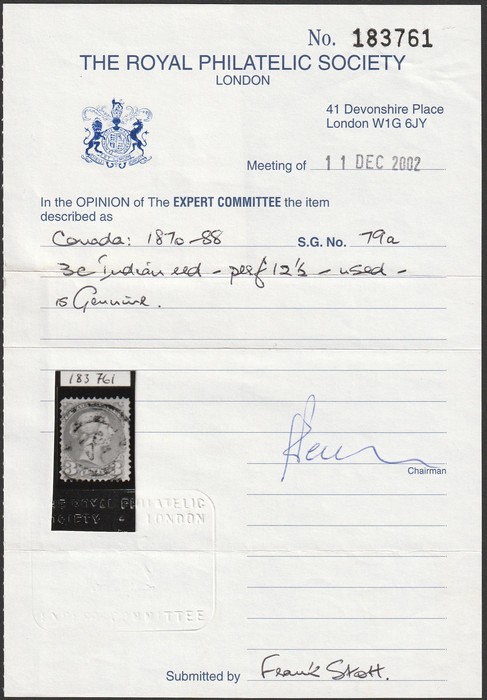 No. 183761
THE ROYAL PHILATELIC SOCIETY
LONDON
41 Devonshire Place
London W1G 6JY
Meeting of 11 DEC 2002
In the OPINION of The EXPERT COMMITTEE the item
described as
Canada: 1870-88 S.G. No. 79a
3c Indian red - perf 12½ - used -
is Genuine.
183761
3 3
Chairman
ROYAL PHILATELIC
SOCIETY LONDON
COMMITTEE
Submitted by Frank Stott.